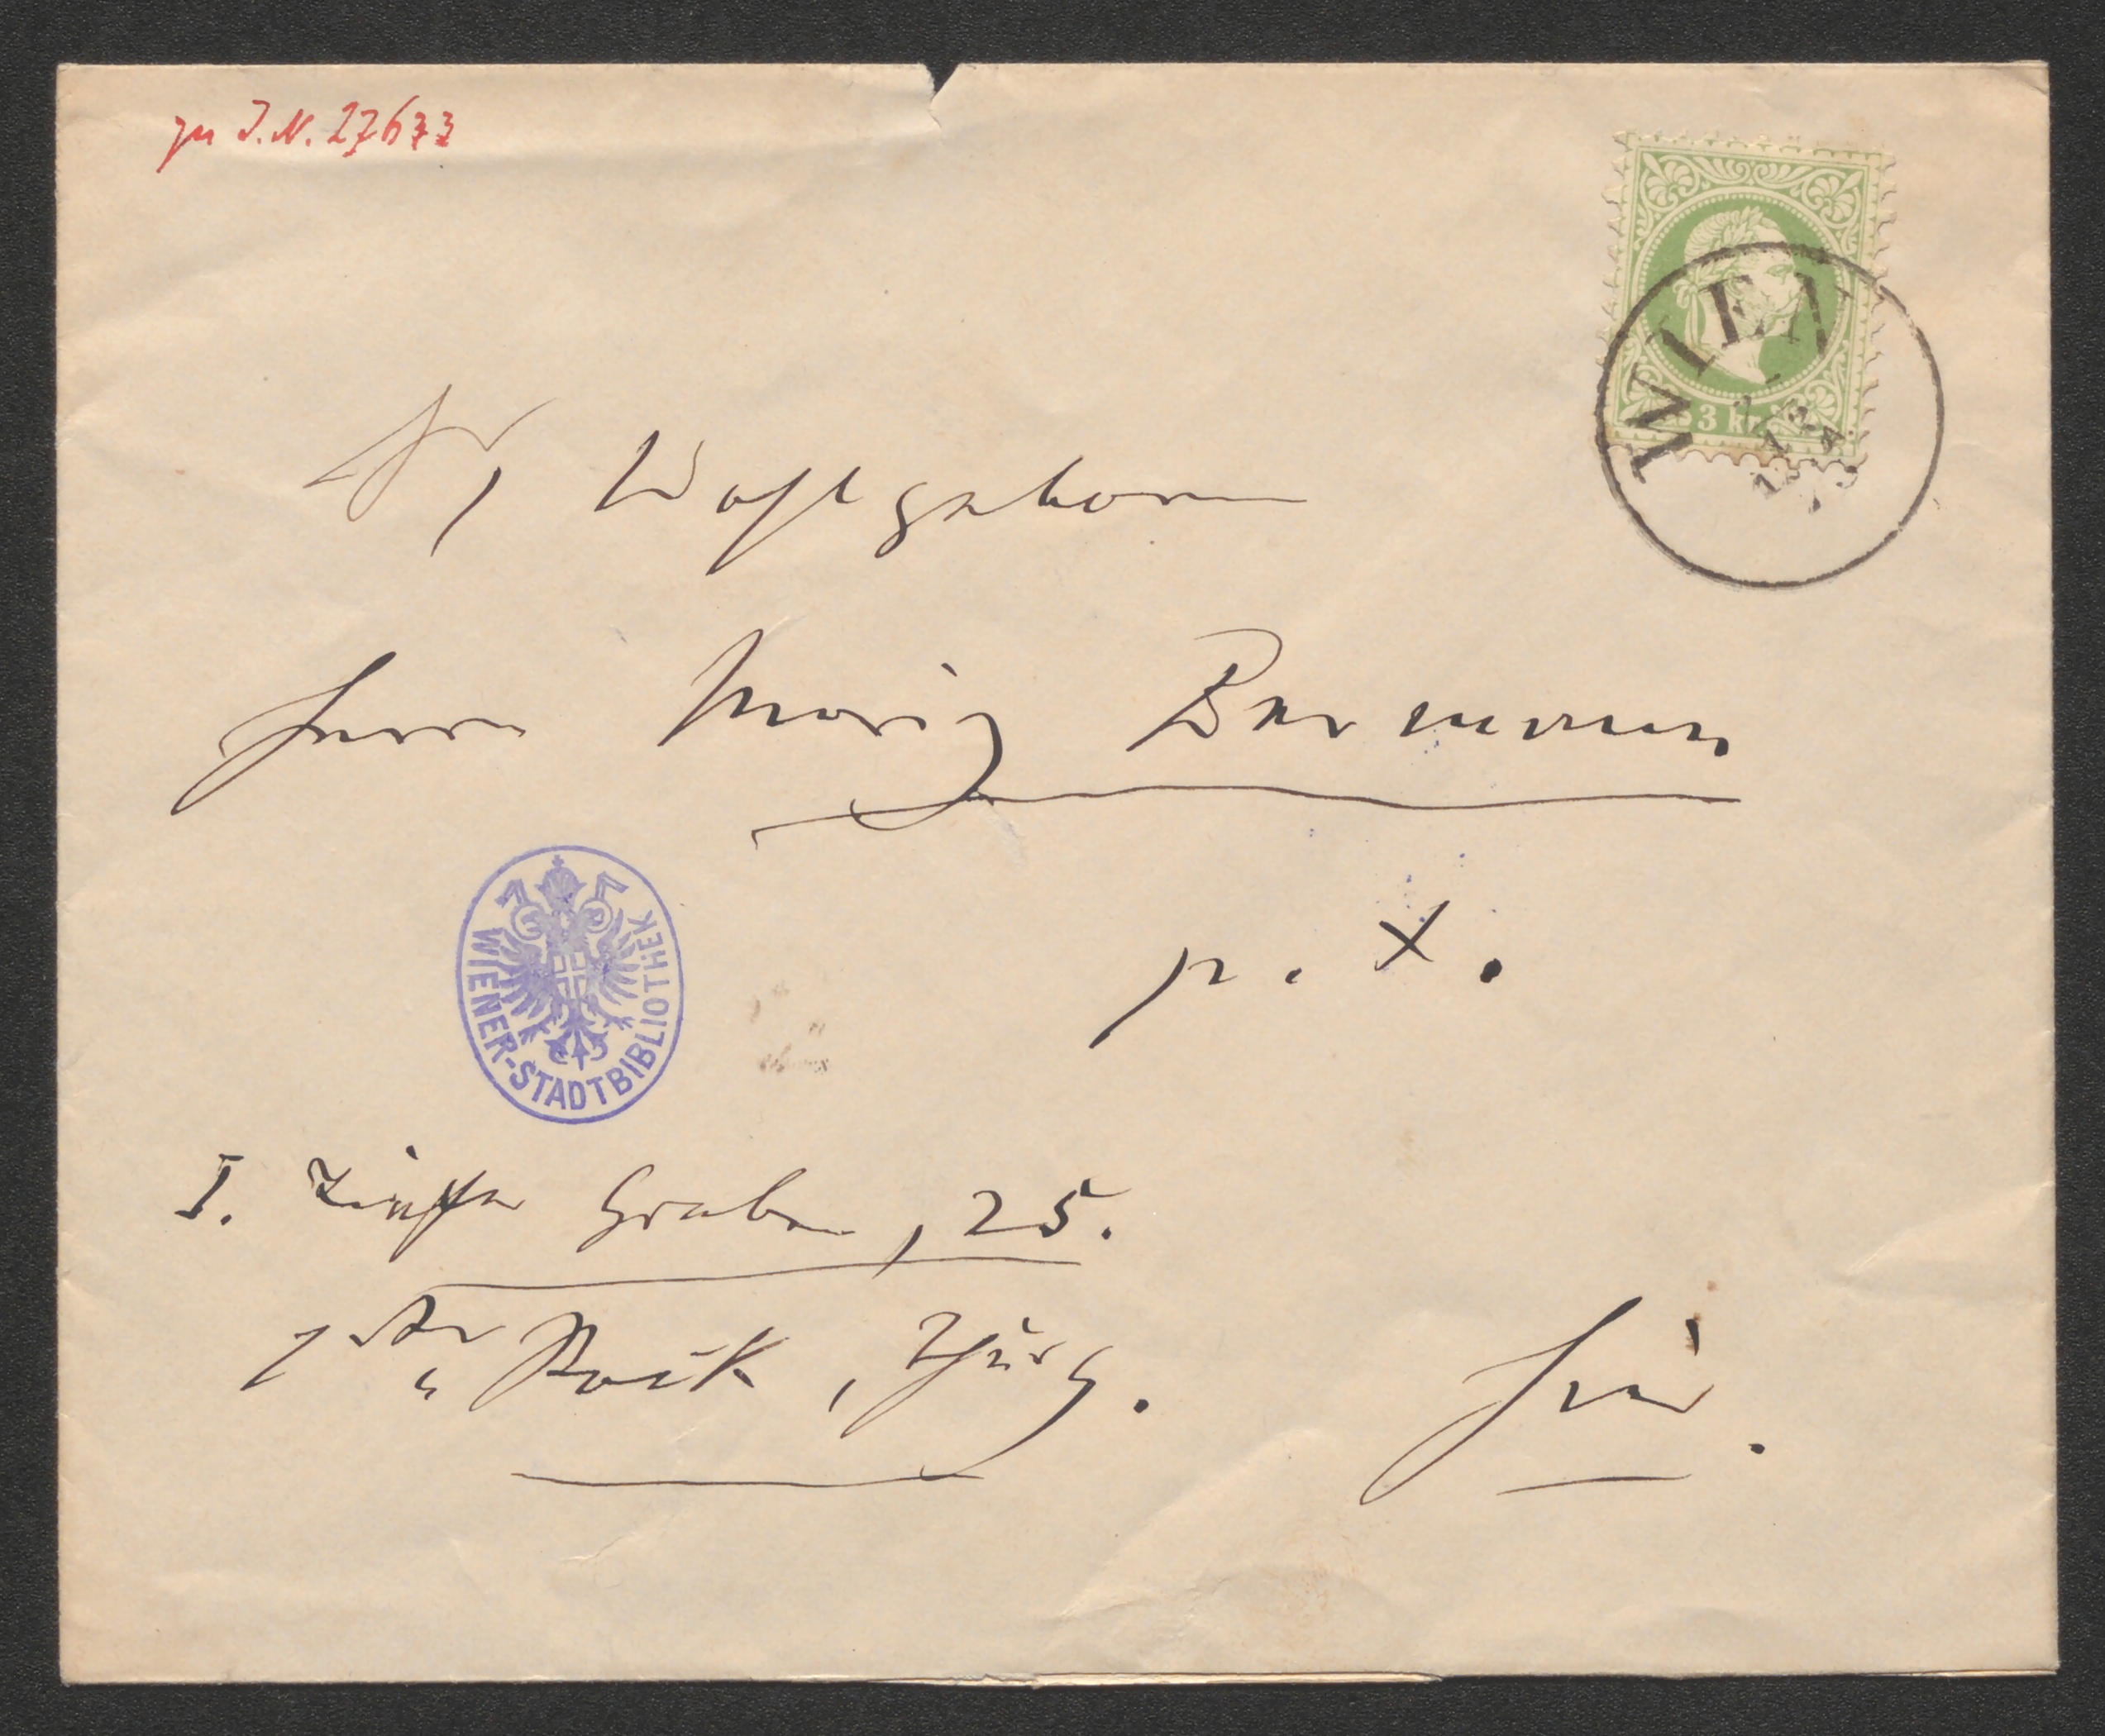 zu I.N. 27673
WIEN
3 kr.
Sr, Wohlgeborn
Herrn Moriz Bermann
p. t.
WIENER-STADTBIBLIOTHEK
I. Tiefer Graben, 25.
Stock, Thür 5.
Hier.